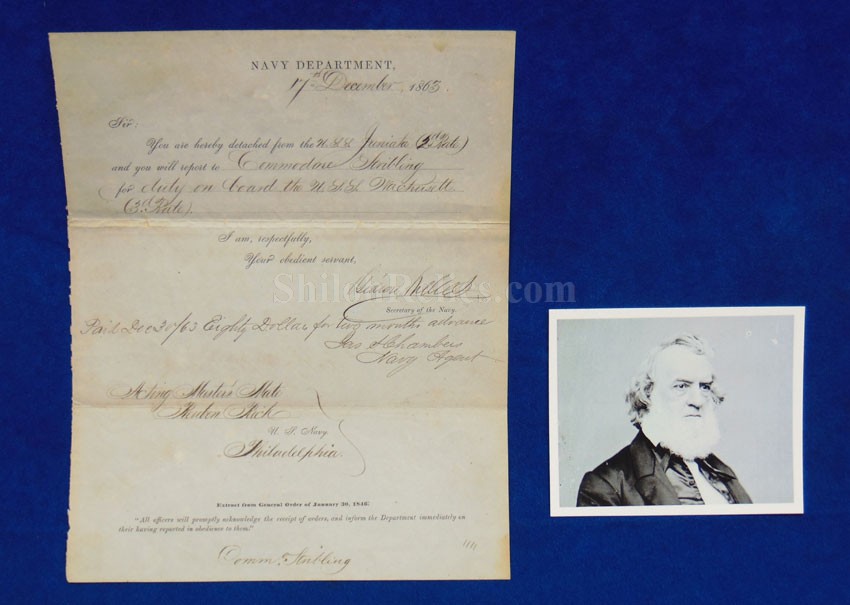 NAVY DEPARTMENT,
17th December 1863.
Sir:
You are hereby detached from the U.S.S. Juniata (2d Rate)
and you will report to Commodore Stribling
for duty on board the U.S.S.
(3d Rate).
I am, respectfully,
Your obedient servant,
Gideon Welles
Secretary of the Navy.
Paid Dec 30/63 Eighty Dollars for two months advance
Jas S Chambers
Navy Agent
Acting Master's Mate
Reuben Rich
U. S. Navy
Philadelphia.
Extract from General Order of January 30, 1846:
"All officers will promptly acknowledge the receipt of orders, and inform the Department immediately on
their having reported in obedience to them."
Comm. Stribling
ShilohRelics.com